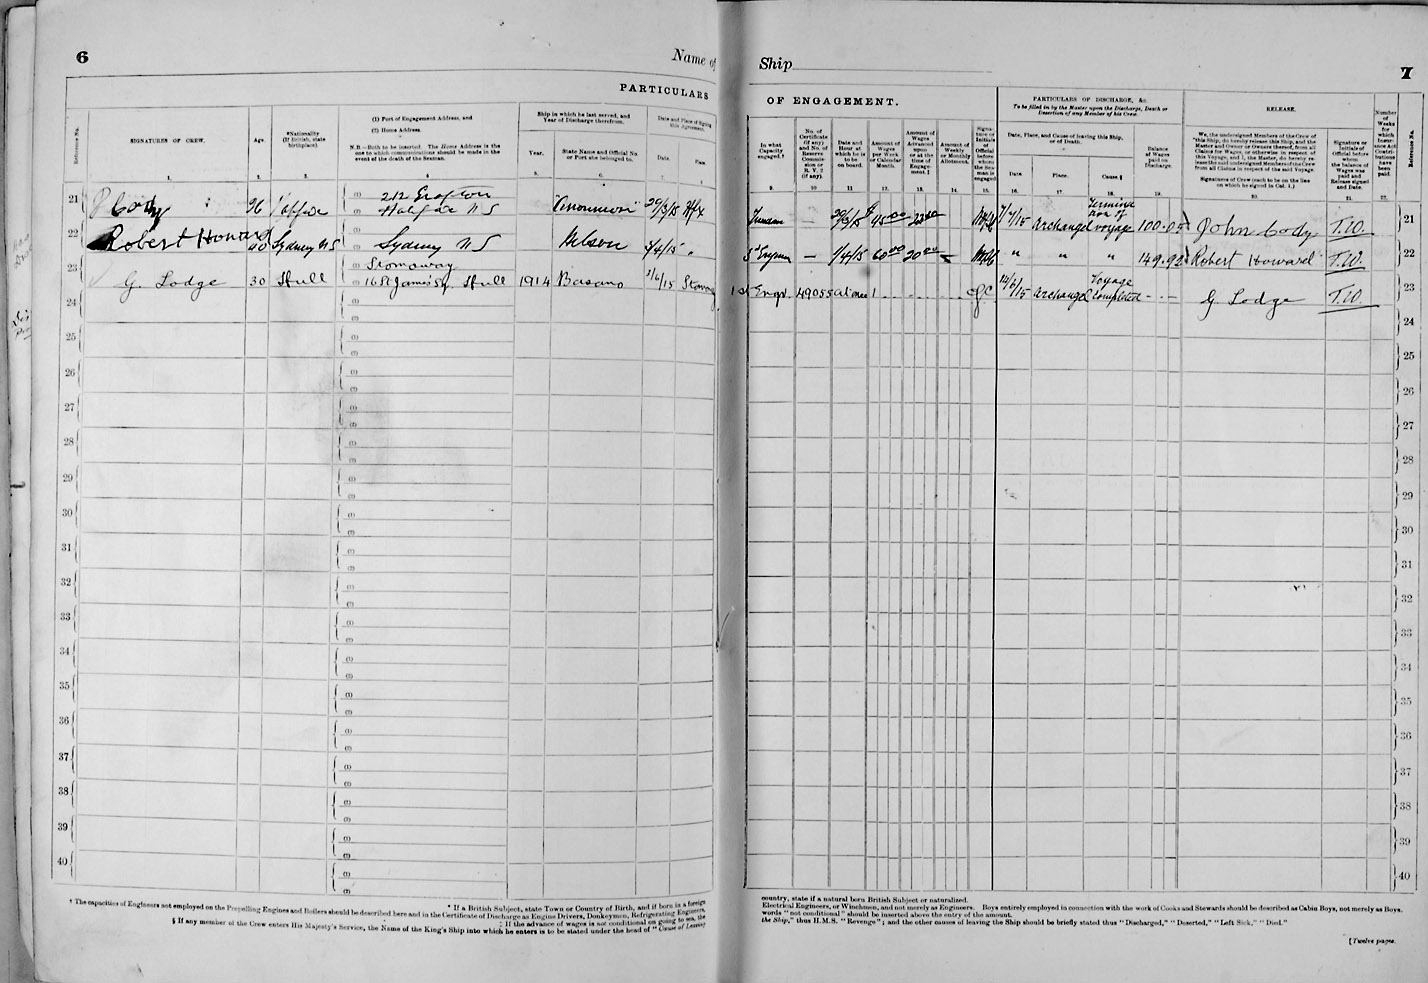 6
Name of
Ship
7
PARTICULARS
OF ENGAGEMENT.
Reference No.
SIGNATURES OF CREW.
Age.
*Nationality
(If British, state
birthplace).
(1) Port of Engagement Address, and
(2) Home Address.
N.B.—Both to be inserted. The Home Address is the
one to which communications should be made in the
event of the death of the Seaman.
Ship in which he last served, and
Year of Discharge therefrom.
Year.
State Name and Official No.
or Port she belonged to.
Date and Place of Signing
this Agreement.
Date.
Place.
In what
Capacity
engaged.†
No. of
Certificate
(if any)
and No. of
Reserve
Commis-
sion or
R. V. 2
(if any).
Date and
Hour at
which he is
to be
on board.
Amount of
Wages
per Week
or Calendar
Month.
Amount of
Wages
Advanced
upon
or at the
time of
Engage-
ment.‡
Amount of
Weekly
or Monthly
Allotment.
Signa-
ture or
Initials of
Official
before
whom
the Sea-
man is
engaged
PARTICULARS OF DISCHARGE, &c.
To be filled in by the Master upon the Discharge, Death or
Desertion of any Member of his Crew.
Date, Place, and Cause of leaving this Ship,
or of Death.
Date
Place.
Cause.§
Balance
of Wages
paid on
Discharge.
RELEASE.
We, the undersigned Members of the Crew of
this Ship, do hereby release this Ship, and the
Master and Owner or Owners thereof, from all
Claims for Wages, or otherwise in respect of
this Voyage, and I, the Master, do hereby re-
lease the said undersigned Members of the Crew
from all Claims in respect of the said Voyage.
Signatures of Crew (each to be on the line
on which he signed in Col. 1.)
Signature or
Initials of
Official before
whom
the balance of
Wages was
paid and
Release signed
and Dated.
Number
of
Weeks
for
which
Insur-
ance Act
Contri-
butions
have
been
paid.
Reference No.
1. 2. 3. 4. 5. 6. 7. 8. 9. 10 11. 12. 13. 14. 15. 16. 17. 18. 19. 20. 21. 22.
21 Cody 26 Halifax (1) 212 Grafton (2) Halifax NS 29/3/15 Hfx Fireman — 29/3/15 $45.00 22.00 7/7/15 Archangel Termina non of voyage 100.05 John Cody T.W. 21
22 Robert Howard 40 Sydney NS Sydney NS Nelson 1/4/15 " — 1/4/15 60.00 20.00 " " " 149.92 Robert Howard T.W. 22
23 G. Lodge 30 Hull (1) Stornoway (2) 16 St James Sq. Hull 1914 Basano 2/6/15 Stornoway Engr. 49055 at once 1 14/6/15 Archangel Voyage completed — G Lodge T.W. 23
24 (1) (2) 24
25 (1) (2) 25
26 (1) (2) 26
27 (1) (2) 27
28 (1) (2) 28
29 (1) (2) 29
30 (1) (2) 30
31 (1) (2) 31
32 (1) (2) 32
33 (1) (2) 33
34 (1) (2) 34
35 (1) (2) 35
36 (1) (2) 36
37 (1) (2) 37
38 (1) (2) 38
39 (1) (2) 39
40 (1) (2) 40
* If a British Subject, state Town or Country of Birth, and if born in a foreign
country, state if a natural born British Subject or naturalized.
† The capacities of Engineers not employed on the Propelling Engines and Boilers should be described here and in the Certificate of Discharge as Engine Drivers, Donkeymen, Refrigerating Engineers,
Electrical Engineers, or Winchmen, and not merely as Engineers. Boys entirely employed in connection with the work of Cooks and Stewards should be described as Cabin Boys, not merely as Boys.
‡ If the advance of wages is not conditional on going to sea, the
words "not conditional" should be inserted above the entry of the amount.
§ If any member of the Crew enters His Majesty's Service, the Name of the King's Ship into which he enters is to be stated under the head of "Cause of Leaving
the Ship," thus H.M.S. "Revenge"; and the other causes of leaving the Ship should be briefly stated thus "Discharged," "Deserted," "Left Sick," "Died."
[Twelve pages.